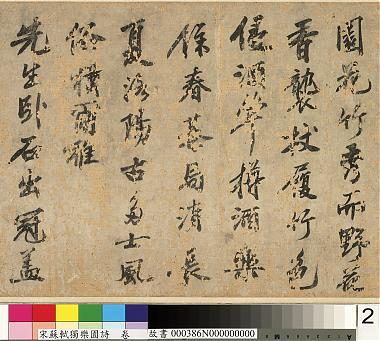 園花竹秀而野花
香襲杖屨竹色
侵酒斝樽酒樂
餘春棊局消長
夏洛陽古多士風
俗猶爾雅
先生臥不出冠蓋
宋蘇軾獨樂園詩 卷 故書 000386N000000000
2